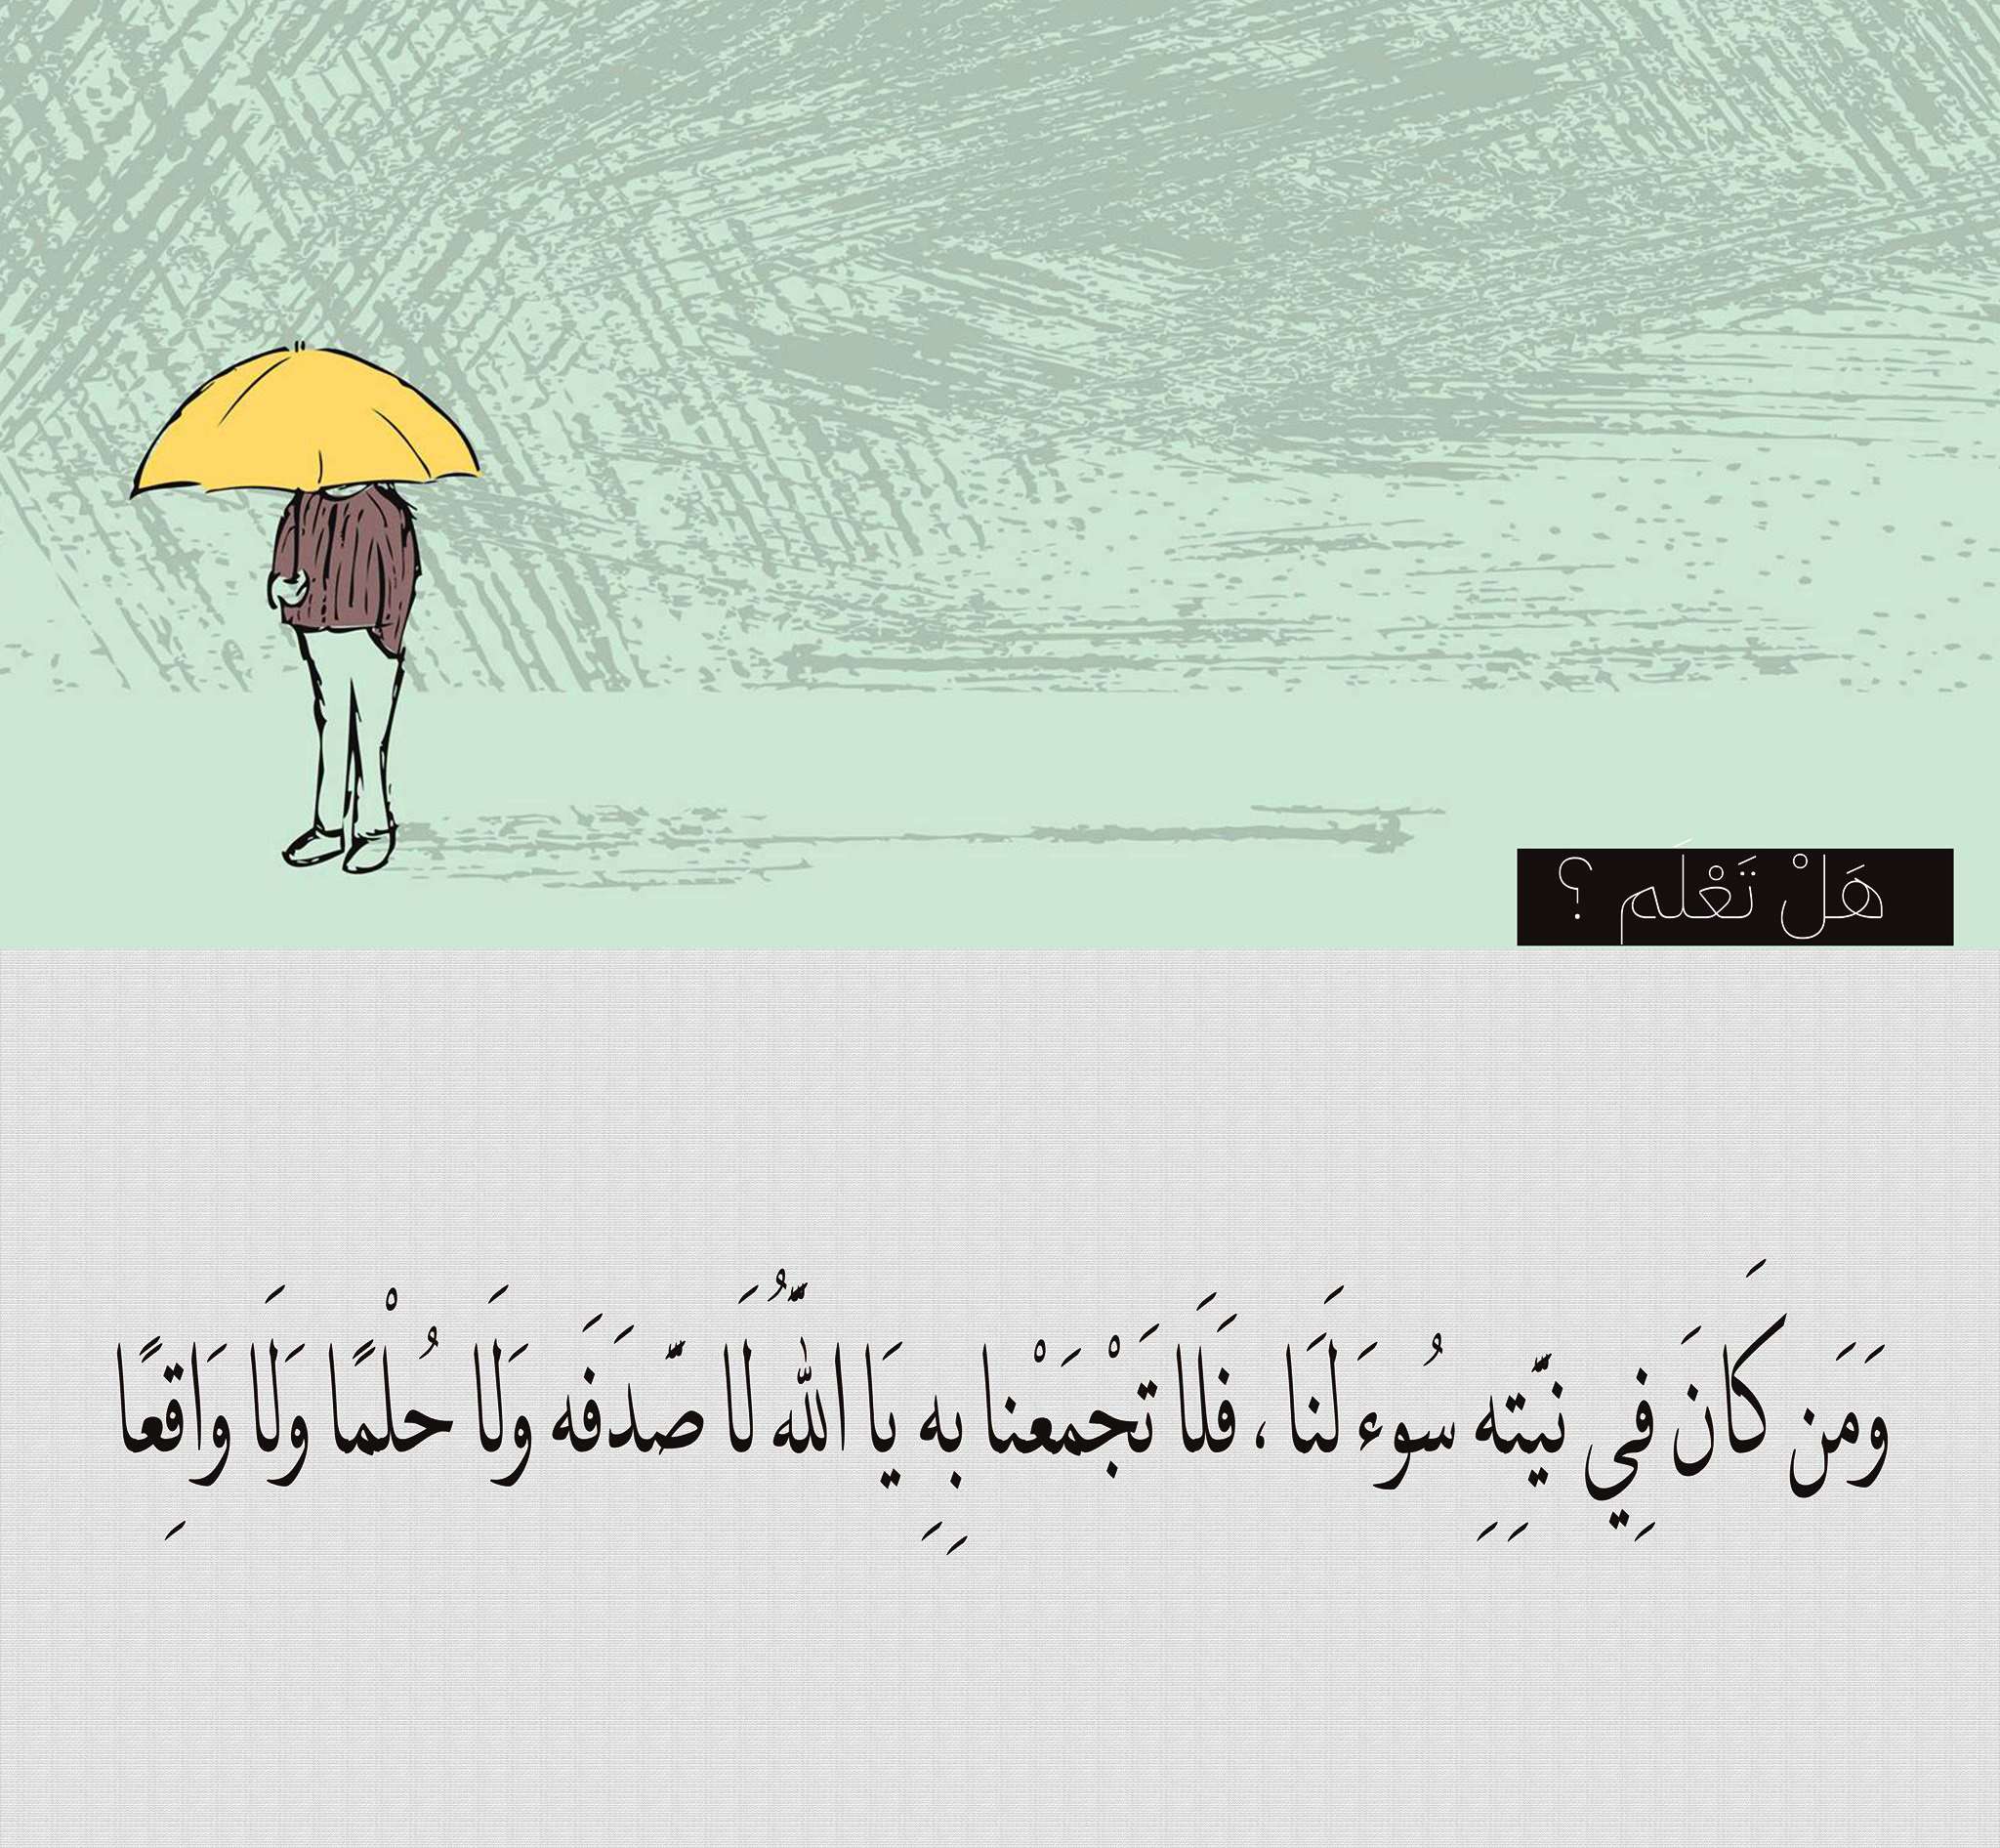 هَلْ تَعْلَم ؟
وَمَن كَانَ فِي نيّتِهِ سُوءَ لَنَا ، فَلَا تَجْمَعْنا بِهِ يَا اللَّهُ لَا صّدَفَه وَلَا حُلْمًا وَلَا وَاقِعًا